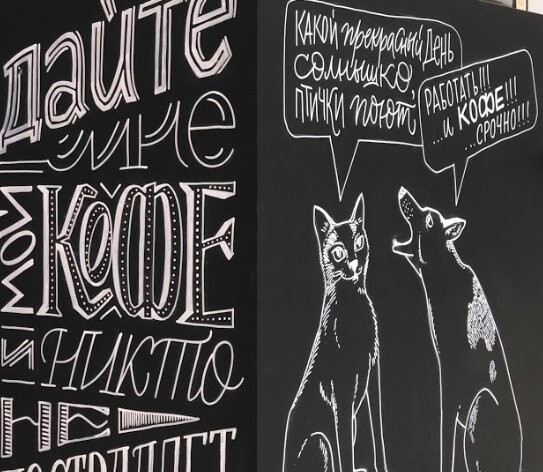 Дайте
мне
МОЙ
КОФЕ
И НИКТО
НЕ
ПОСТРАДАЕТ
КАКОЙ прекрасный ДЕНЬ
СОЛНЫШКО,
ПТИЧКИ поют,
РАБОТАТЬ!!!
...и КОФЕ!!!
...СРОЧНО!!!